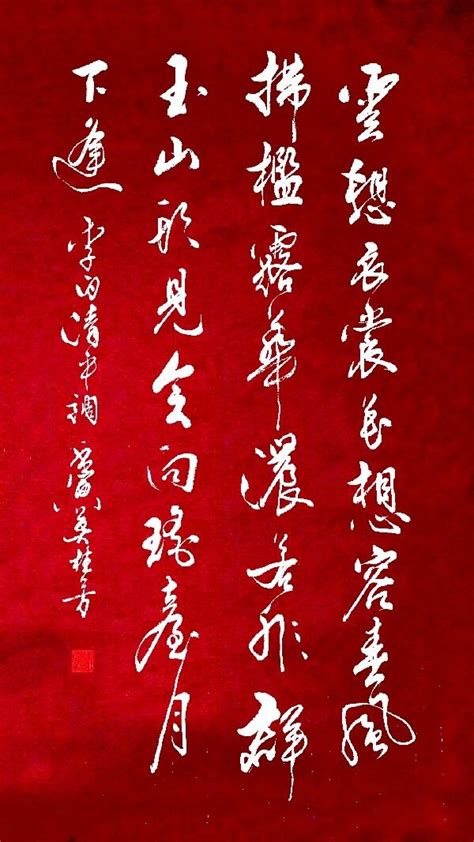 雲想衣裳花想容春風
拂檻露華濃若非群
玉山頭見會向瑤臺月
下逢 李白清平調